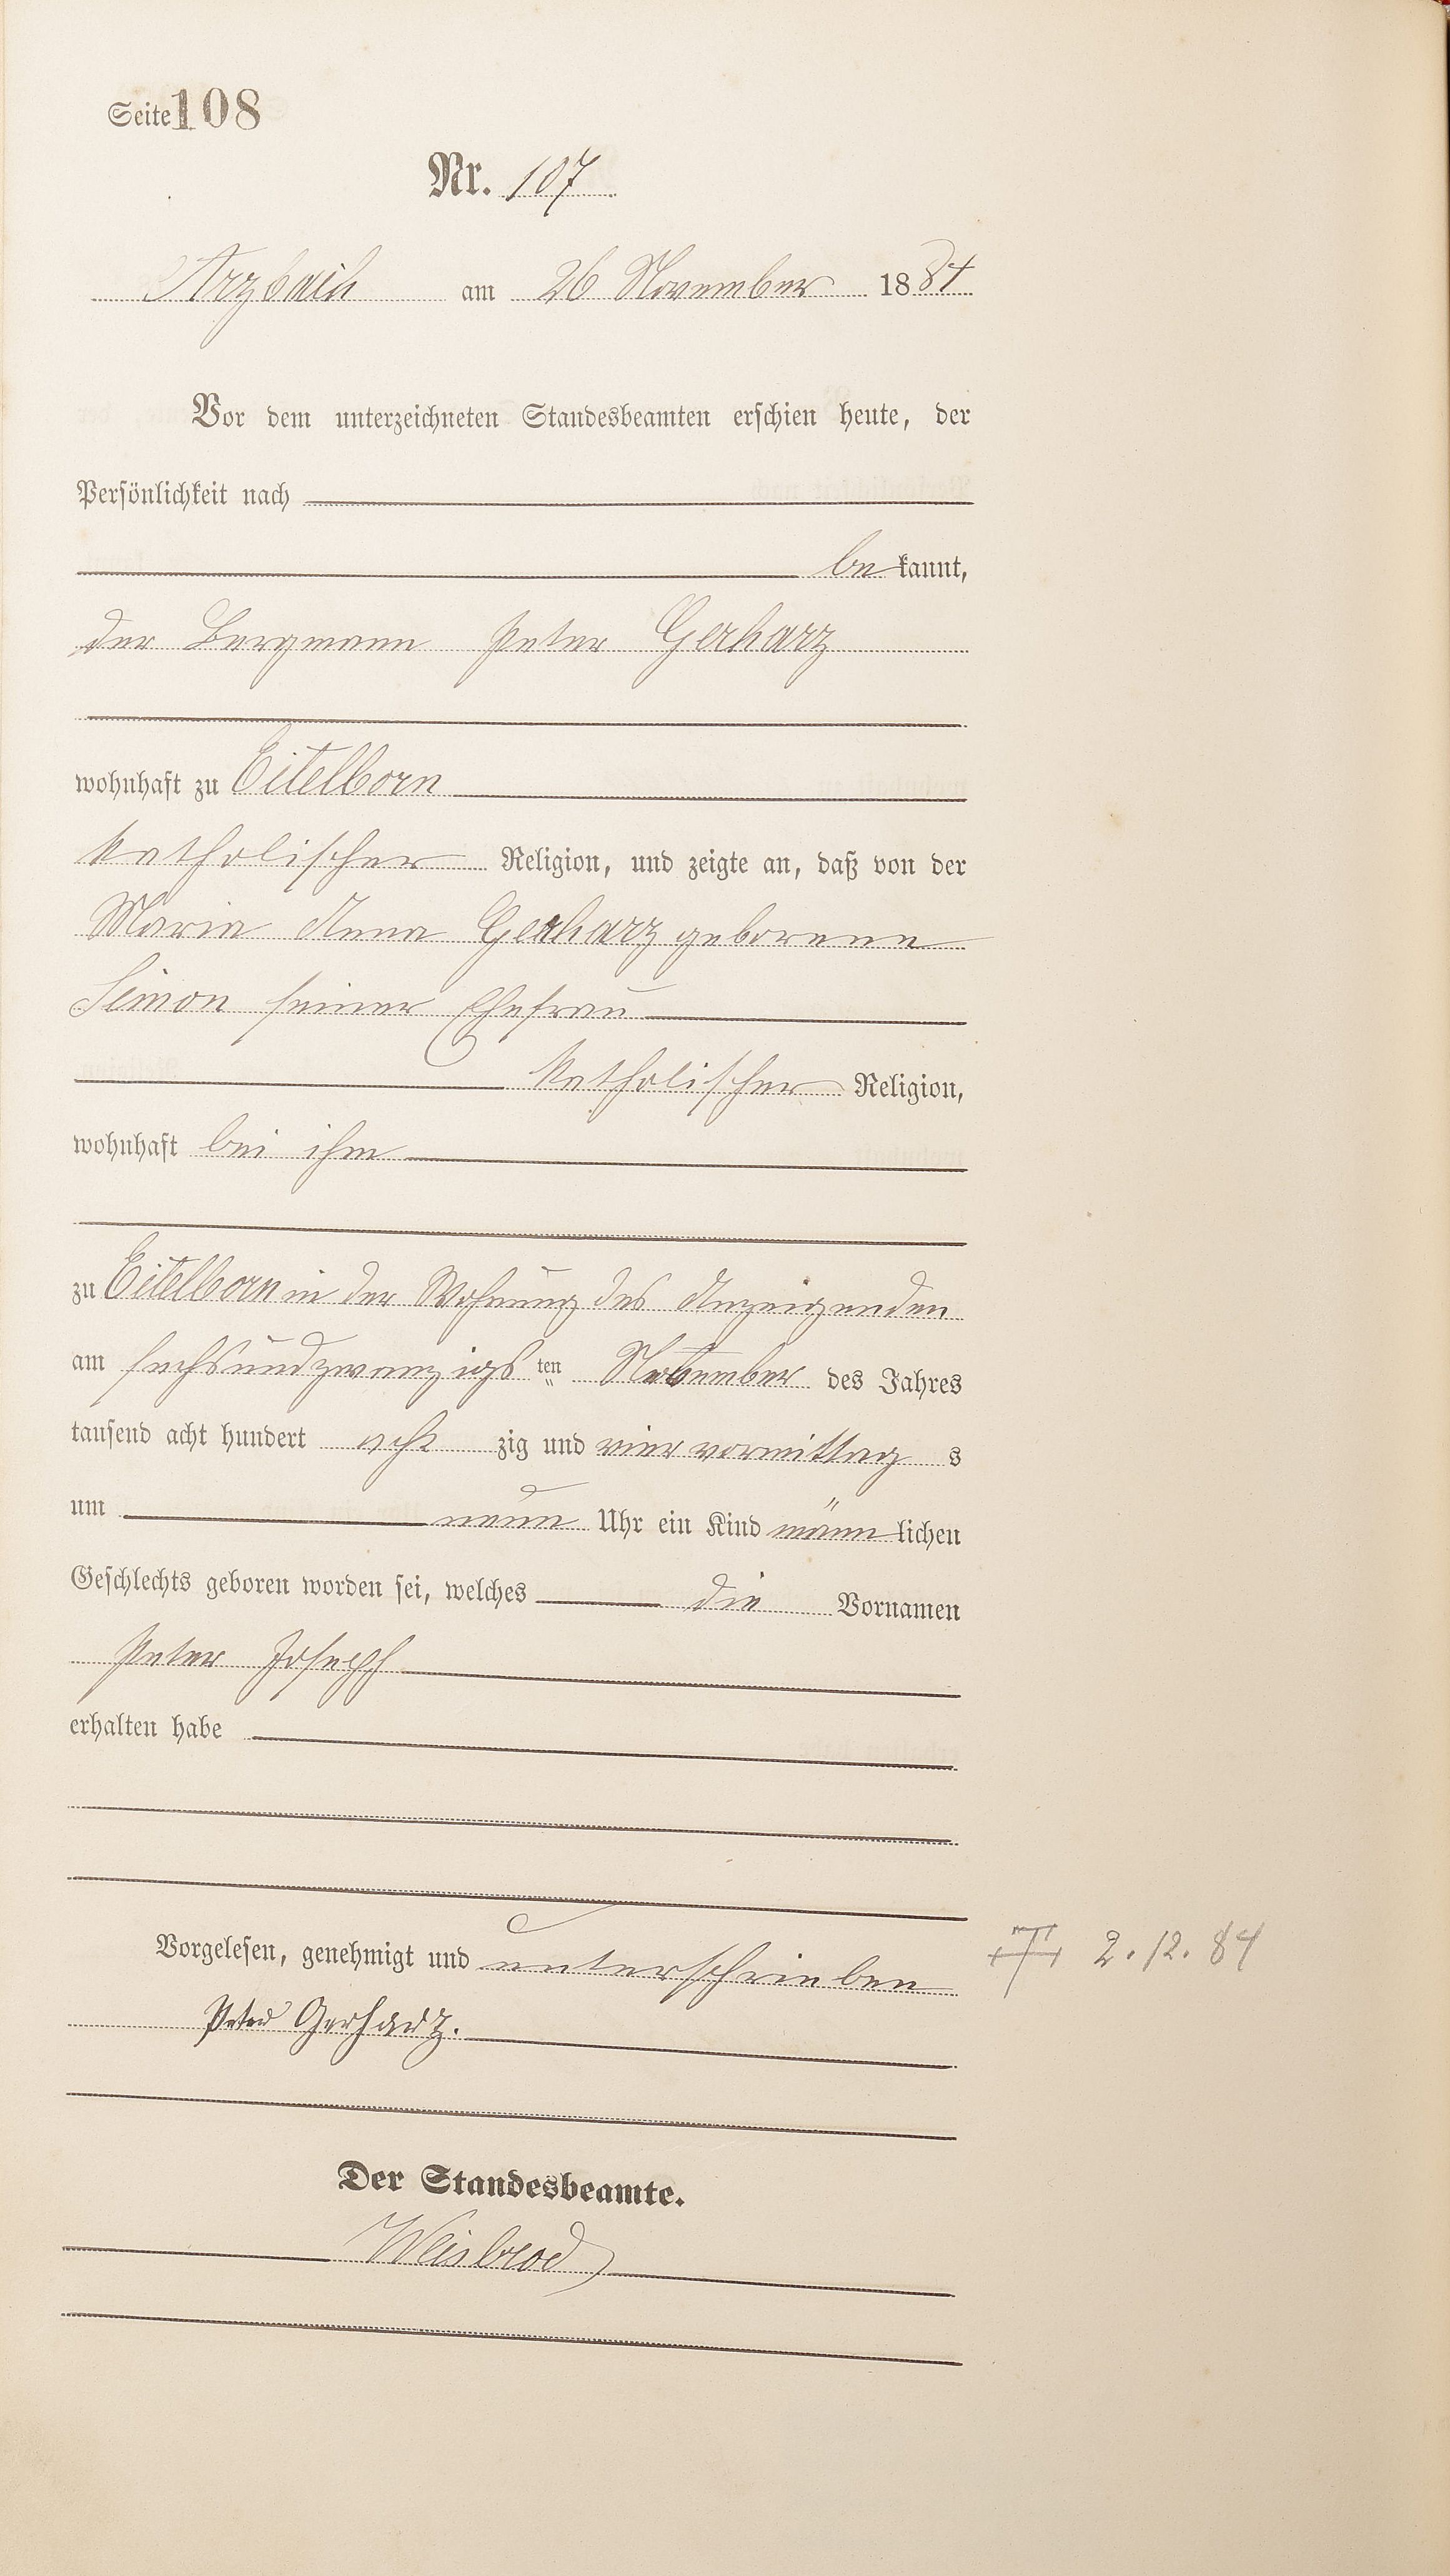 Seite 108
Nr. 107
Arzbach am 26 November 1884
Vor dem unterzeichneten Standesbeamten erschien heute, der
Persönlichkeit nach
be kannt,
der Bergmann Peter Gerharz
wohnhaft zu Eitelborn
katholischer Religion, und zeigte an, daß von der
Maria Anna Gerharz geborene
Simon seiner Ehefrau
katholischer Religion,
wohnhaft bei ihm
zu Eitelborn in der Wohnung des Anzeigenden
am sechsundzwanzigs ten November des Jahres
tausend acht hundert acht zig und vier vormittag s
um neun Uhr ein Kind männ lichen
Geschlechts geboren worden sei, welches die Vornamen
Peter Joseph
erhalten habe
Vorgelesen, genehmigt und unterschrieben
Peter Gerharz.
Der Standesbeamte.
Weisbrod
† 2.12.84